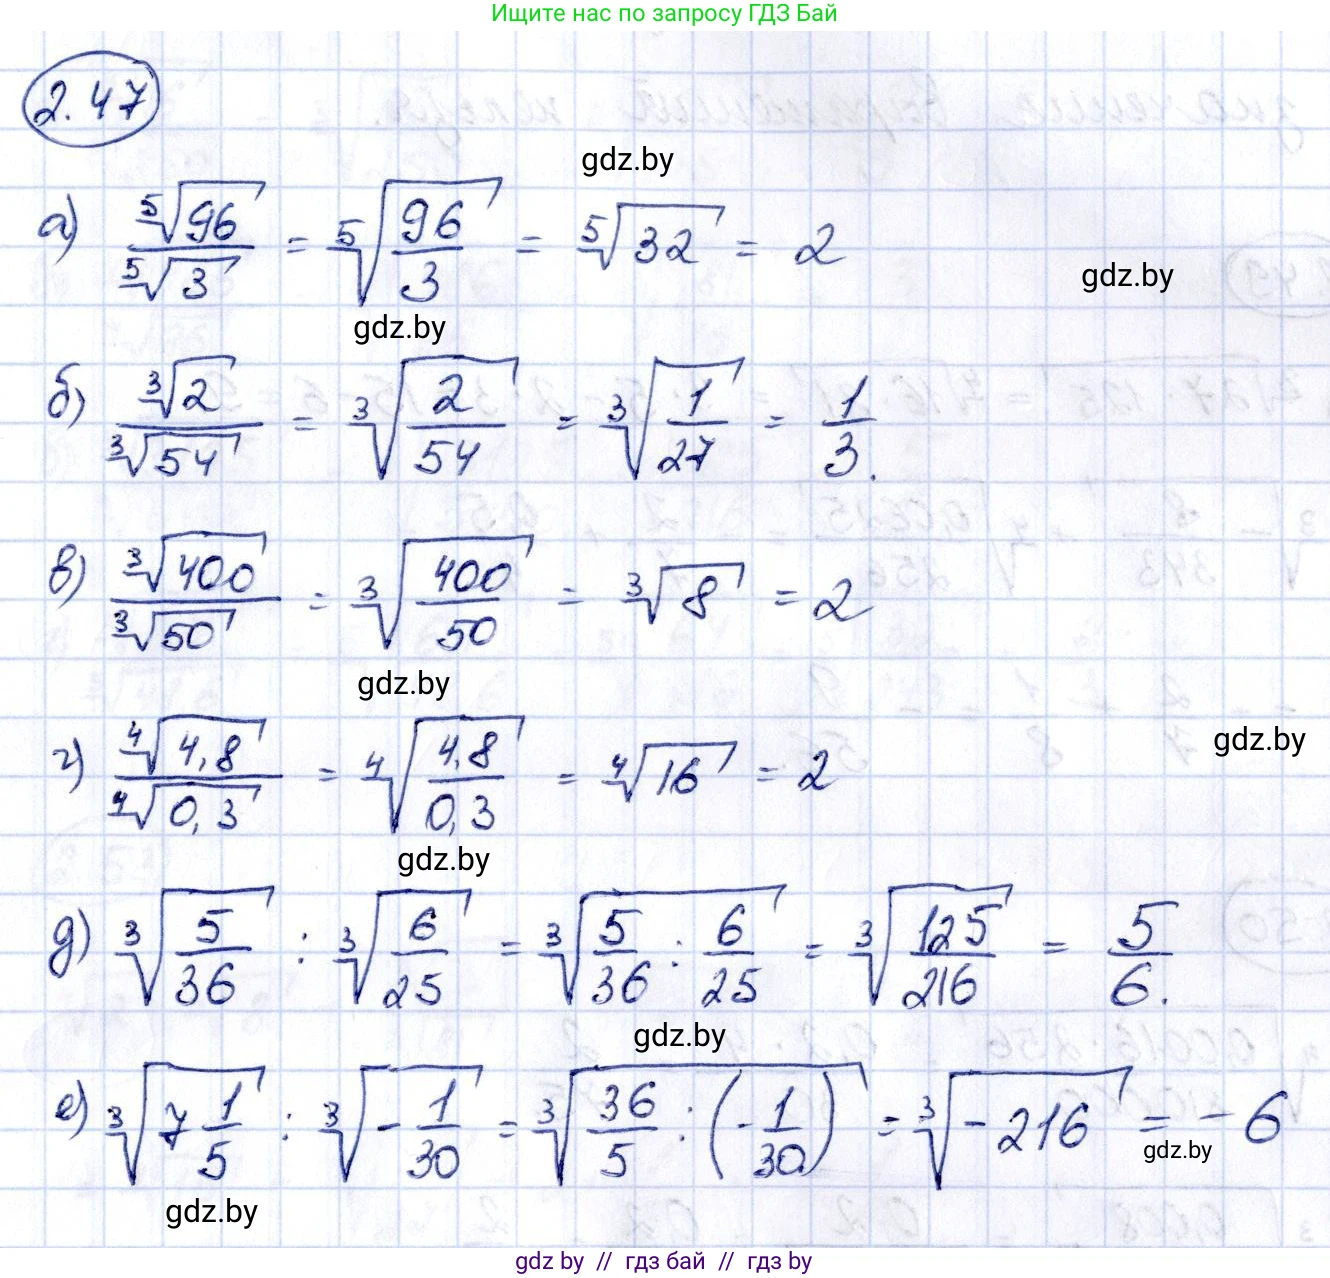 Ищите нас по запросу ГДЗ Бай
2.47
gdz.by
а) ⁵√96 / ⁵√3 = ⁵√(96/3) = ⁵√32 = 2
gdz.by
gdz.by
б) ³√2 / ³√54 = ³√(2/54) = ³√(1/27) = 1/3.
в) ³√400 / ³√50 = ³√(400/50) = ³√8 = 2
gdz.by
г) ⁴√4,8 / ⁴√0,3 = ⁴√(4,8/0,3) = ⁴√16 = 2
gdz.by
gdz.by
д) ³√(5/36) : ³√(6/25) = ³√(5/36 : 6/25) = ³√(125/216) = 5/6.
gdz.by
е) ³√(7 1/5) : ³√(-1/30) = ³√(36/5 : (-1/30)) = ³√(-216) = -6
gdz.by
gdz.by
gdz by // гдз бай // гдз by